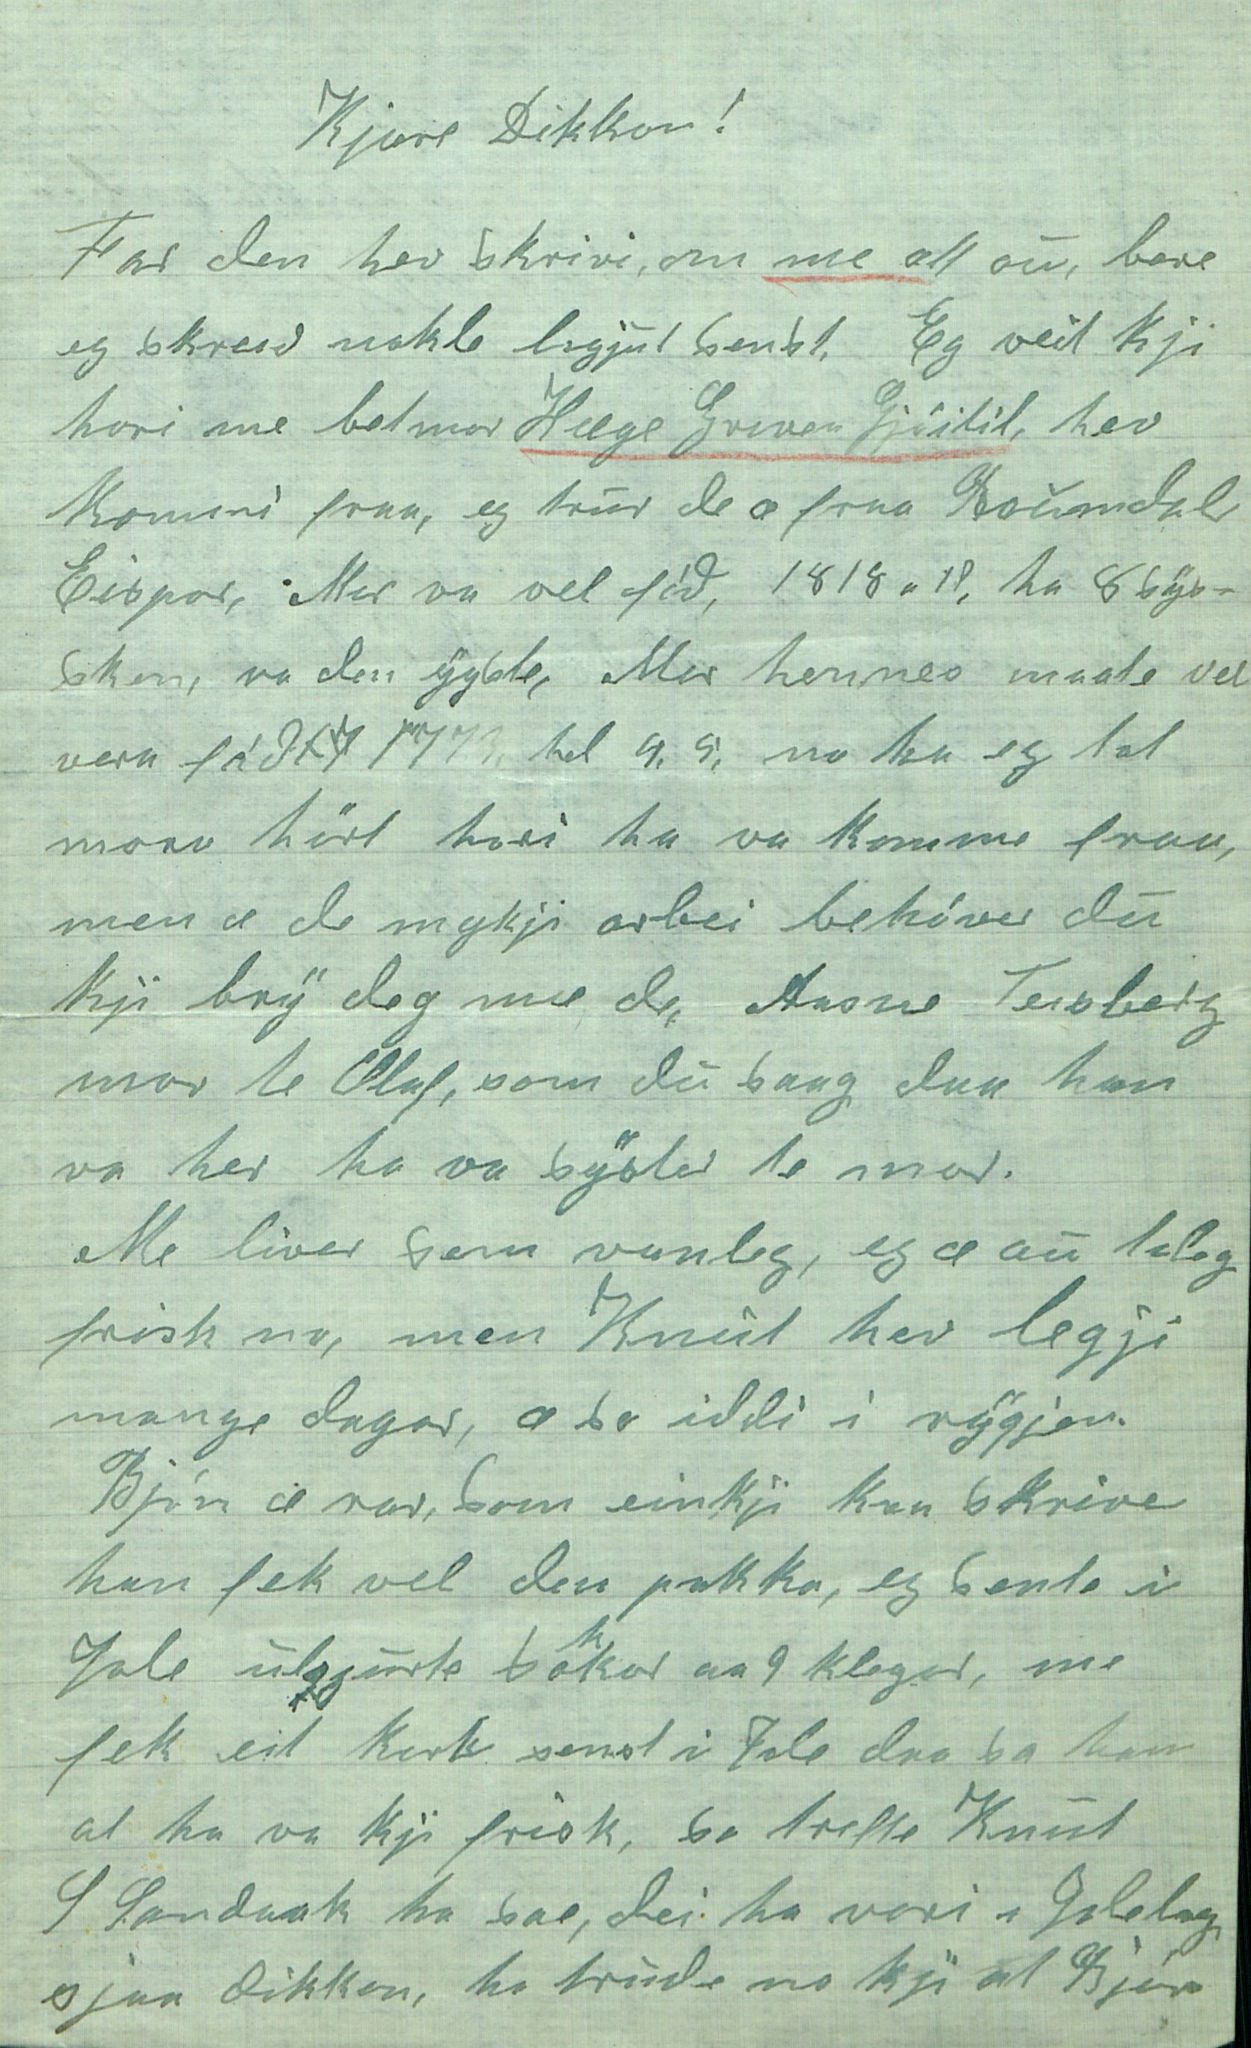 Kjære Dikkon!
Far den hev skrivi, om me all oú, bare
eg skreiv nokle ligjut senst. Eg veit kji
hori me betmor Hæge Greven Gjúitil, hev
kommi fraa, eg trúr de æ fraa Boúmdal
Eispor, Mor va vel fód, 1818 a 19, ha 8 sýs-
sken, va den ýgste, Mor hennes maate vel
vera fód 1773, hel 9. 9. no ha eg tat
mora hört hori ha va komme fraa,
men æ de mykji arbei behóver dú
kji brÿ deg mæ de, Aasne Teisberg
mor te Olaf, som dú saag daa han
va her ha va sÿster te mor.
Me liver som vanleg, eg æ oú toleg
frisk no, men Knút hev legji
mange dagar, æ so iddi i rÿggjen.
Bjón æ rar, som einkji kan skrive
han fek vel den pakka, eg sente i
Jole úlgjúrte sokkar aa 9 klegar, me
fek eit kort senst i Jole daa sa han
at ha va kji frisk, so trefte Knút
S Sandaak ha sae, dei ha vori i Jolelag
sjaa Dikkon, ha trúde no kji at Bjón